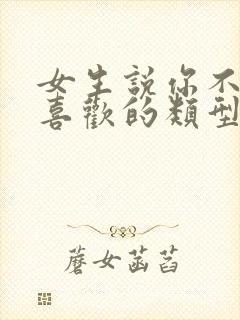 女生說你不
喜歡的類型
蘑女菡萏